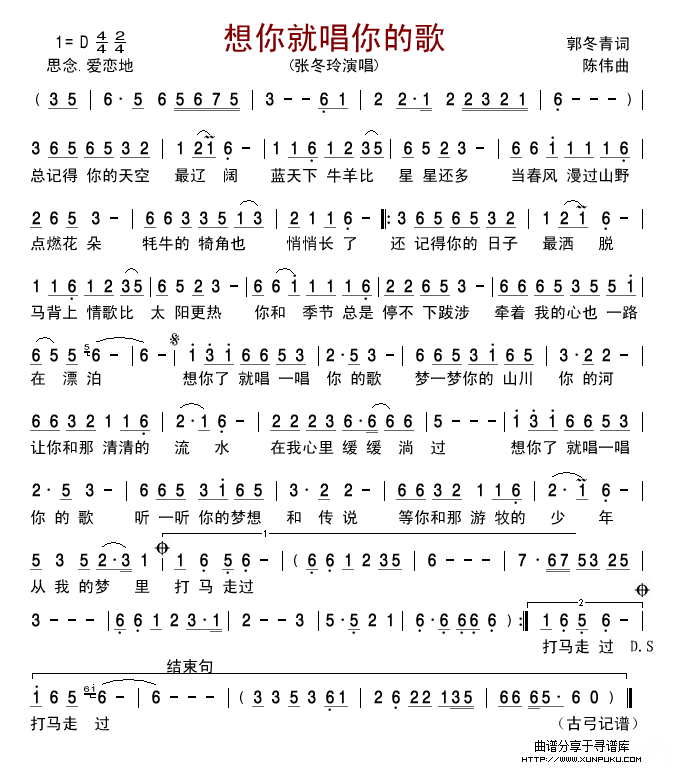 想你就唱你的歌
1= D 4/4 2/4
郭冬青词
思念.爱恋地
(张冬玲演唱)
陈伟曲
( 3 5 | 6· 5 6 5 6 7 5 | 3 - - 6 1 | 2 2·1 2 2 3 2 1 | 6 - - - )
3 6 5 6 5 3 2 | 1 2 1 6 - | 1 1 6 1 2 3 5 | 6 5 2 3 - | 6 6 1 1 1 1 6 |
总记得 你的天空 最辽 阔 蓝天下 牛羊比 星 星还多 当春风 漫过山野
2 6 5 3 - | 6 6 3 3 5 1 3 | 2 1 1 6 - ‖: 3 6 5 6 5 3 2 | 1 2 1 6 - |
点燃花 朵 牦牛的 犄角也 悄悄长 了 还 记得你的 日子 最洒 脱
1 1 6 1 2 3 5 | 6 5 2 3 - | 6 6 1 1 1 1 6 | 2 2 6 5 3 - | 6 6 5 3 5 5 1 |
马背上 情歌比 太 阳更热 你和 季节 总是 停不 下跋涉 牵着 我的心也 一路
6 5 5 5 6 - | 6 - 1 3 1 6 6 5 3 | 2·5 3 - | 6 6 5 3 1 6 5 | 3·2 2 - |
在 漂 泊 想你了 就唱 一唱 你 的歌 梦一梦你的 山川 你 的河
6 6 3 2 1 1 6 | 2·1 6 - | 2 2 2 3 6·6 6 6 | 5 - - - | 1 3 1 6 6 5 3 |
让你和那 清清的 流 水 在我心里 缓 缓 淌 过 想你了 就唱一唱
2· 5 3 - | 6 6 5 3 1 6 5 | 3· 2 2 - | 6 6 3 2 1 1 6 | 2· 1 6 - |
你 的 歌 听 一听 你的梦想 和 传 说 等你和那 游 牧的 少 年
1
5 3 5 2·3 1 | 1 6 5 6 - | ( 6 6 1 2 3 5 | 6 - - - | 7· 6 7 5 3 2 5 |
从 我 的梦 里 打 马 走过
2
3 - - - | 6 6 1 2 3·1 | 2 - - 3 | 5·5 2 1 | 6·6 6 6 6 ) :‖ 1 6 5 6 - |
打马走 过 D.S
结束句
1 6 5 6i 6 - | 6 - - - | ( 3 3 5 3 6 1 | 2 6 2 2 1 3 5 | 6 6 6 5· 6 0 ) ‖
打马走 过
(古弓记谱)
曲谱分享于寻谱库
HTTP://WWW.XUNPUKU.COM